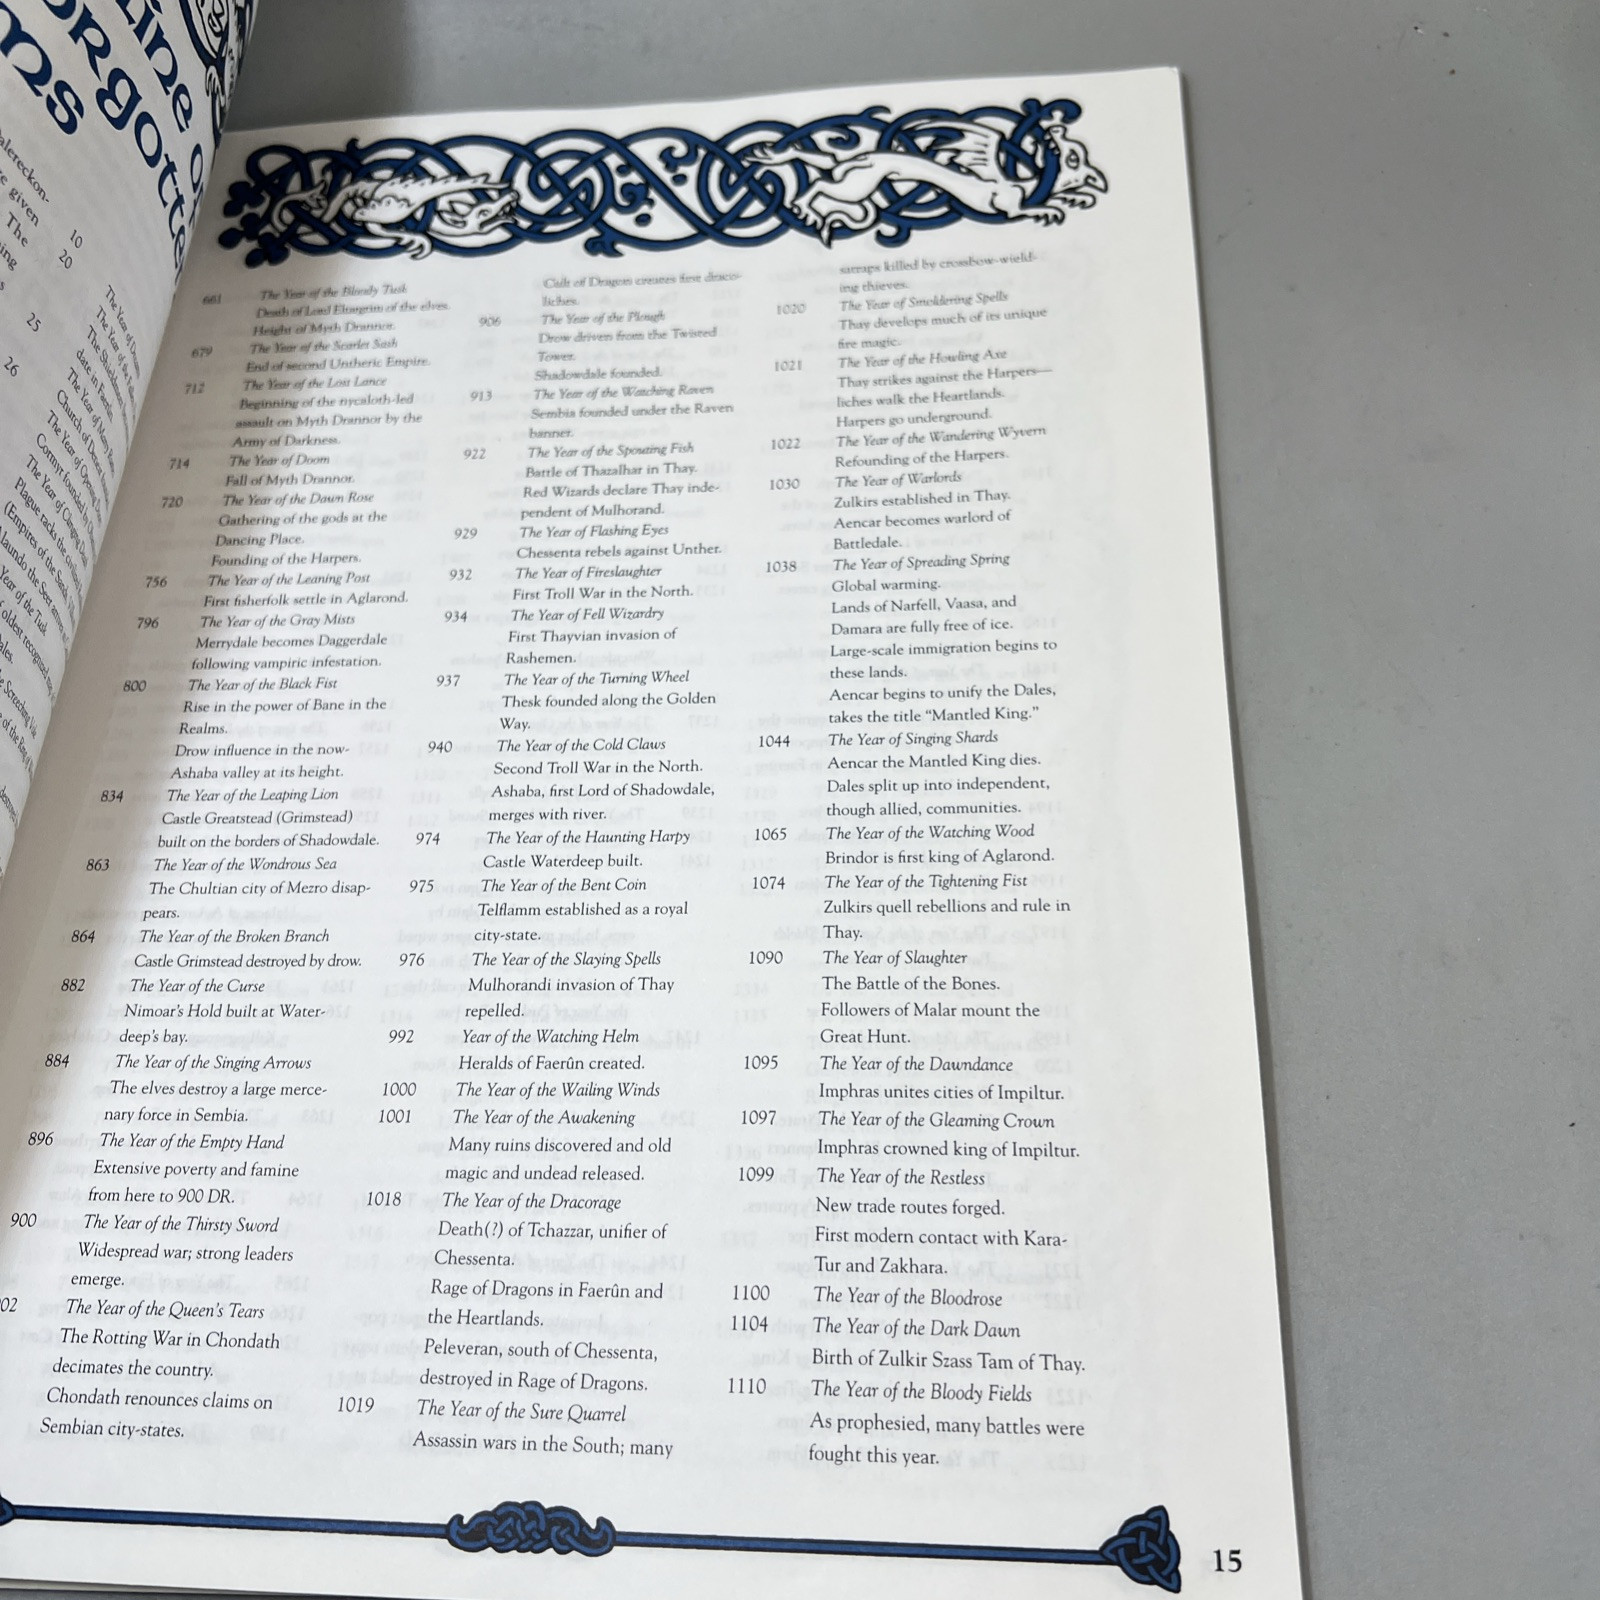 line o
orgotte
ms
alereckon-
re given
The
ing
10
20
25
26
The Year of Dreams
The Shieldmeet
date in Faerûn.
The Year of Many Runes
Church of Deneir
The Year of Opening Doors
Cormyr founded
The Year of Clinging Death
Plague racks the civilized
(Empires of the Sands
Alaundo the Seer arrives
Year of the Tusk
oldest recognized
ales.
661 The Year of the Bloody Tusk
Death of Lord Eltargrim of the elves.
Height of Myth Drannor.
679 The Year of the Scarlet Sash
End of second Untheric Empire.
712 The Year of the Lost Lance
Beginning of the nycaloth-led
assault on Myth Drannor by the
Army of Darkness.
714 The Year of Doom
Fall of Myth Drannor.
720 The Year of the Dawn Rose
Gathering of the gods at the
Dancing Place.
Founding of the Harpers.
756 The Year of the Leaning Post
First fisherfolk settle in Aglarond.
796 The Year of the Gray Mists
Merrydale becomes Daggerdale
following vampiric infestation.
800 The Year of the Black Fist
Rise in the power of Bane in the
Realms.
Drow influence in the now-
Ashaba valley at its height.
834 The Year of the Leaping Lion
Castle Greatstead (Grimstead)
built on the borders of Shadowdale.
863 The Year of the Wondrous Sea
The Chultian city of Mezro disap-
pears.
864 The Year of the Broken Branch
Castle Grimstead destroyed by drow.
882 The Year of the Curse
Nimoar's Hold built at Water-
deep's bay.
884 The Year of the Singing Arrows
The elves destroy a large merce-
nary force in Sembia.
896 The Year of the Empty Hand
Extensive poverty and famine
from here to 900 DR.
900 The Year of the Thirsty Sword
Widespread war; strong leaders
emerge.
02 The Year of the Queen's Tears
The Rotting War in Chondath
decimates the country.
Chondath renounces claims on
Sembian city-states.
Cult of Dragon creates first draco-
liches.
906 The Year of the Plough
Drow driven from the Twisted
Tower.
Shadowdale founded.
913 The Year of the Watching Raven
Sembia founded under the Raven
banner.
922 The Year of the Spouting Fish
Battle of Thazalhar in Thay.
Red Wizards declare Thay inde-
pendent of Mulhorand.
929 The Year of Flashing Eyes
Chessenta rebels against Unther.
932 The Year of Fireslaughter
First Troll War in the North.
934 The Year of Fell Wizardry
First Thayvian invasion of
Rashemen.
937 The Year of the Turning Wheel
Thesk founded along the Golden
Way.
940 The Year of the Cold Claws
Second Troll War in the North.
Ashaba, first Lord of Shadowdale,
merges with river.
974 The Year of the Haunting Harpy
Castle Waterdeep built.
975 The Year of the Bent Coin
Telflamm established as a royal
city-state.
976 The Year of the Slaying Spells
Mulhorandi invasion of Thay
repelled.
992 Year of the Watching Helm
Heralds of Faerûn created.
1000 The Year of the Wailing Winds
1001 The Year of the Awakening
Many ruins discovered and old
magic and undead released.
1018 The Year of the Dracorage
Death(?) of Tchazzar, unifier of
Chessenta.
Rage of Dragons in Faerûn and
the Heartlands.
Peleveran, south of Chessenta,
destroyed in Rage of Dragons.
1019 The Year of the Sure Quarrel
Assassin wars in the South; many
satraps killed by crossbow-wield-
ing thieves.
1020 The Year of Smoldering Spells
Thay develops much of its unique
fire magic.
1021 The Year of the Howling Axe
Thay strikes against the Harpers—
liches walk the Heartlands.
Harpers go underground.
1022 The Year of the Wandering Wyvern
Refounding of the Harpers.
1030 The Year of Warlords
Zulkirs established in Thay.
Aencar becomes warlord of
Battledale.
1038 The Year of Spreading Spring
Global warming.
Lands of Narfell, Vaasa, and
Damara are fully free of ice.
Large-scale immigration begins to
these lands.
Aencar begins to unify the Dales,
takes the title “Mantled King.”
1044 The Year of Singing Shards
Aencar the Mantled King dies.
Dales split up into independent,
though allied, communities.
1065 The Year of the Watching Wood
Brindor is first king of Aglarond.
1074 The Year of the Tightening Fist
Zulkirs quell rebellions and rule in
Thay.
1090 The Year of Slaughter
The Battle of the Bones.
Followers of Malar mount the
Great Hunt.
1095 The Year of the Dawndance
Imphras unites cities of Impiltur.
1097 The Year of the Gleaming Crown
Imphras crowned king of Impiltur.
1099 The Year of the Restless
New trade routes forged.
First modern contact with Kara-
Tur and Zakhara.
1100 The Year of the Bloodrose
1104 The Year of the Dark Dawn
Birth of Zulkir Szass Tam of Thay.
1110 The Year of the Bloody Fields
As prophesied, many battles were
fought this year.
15